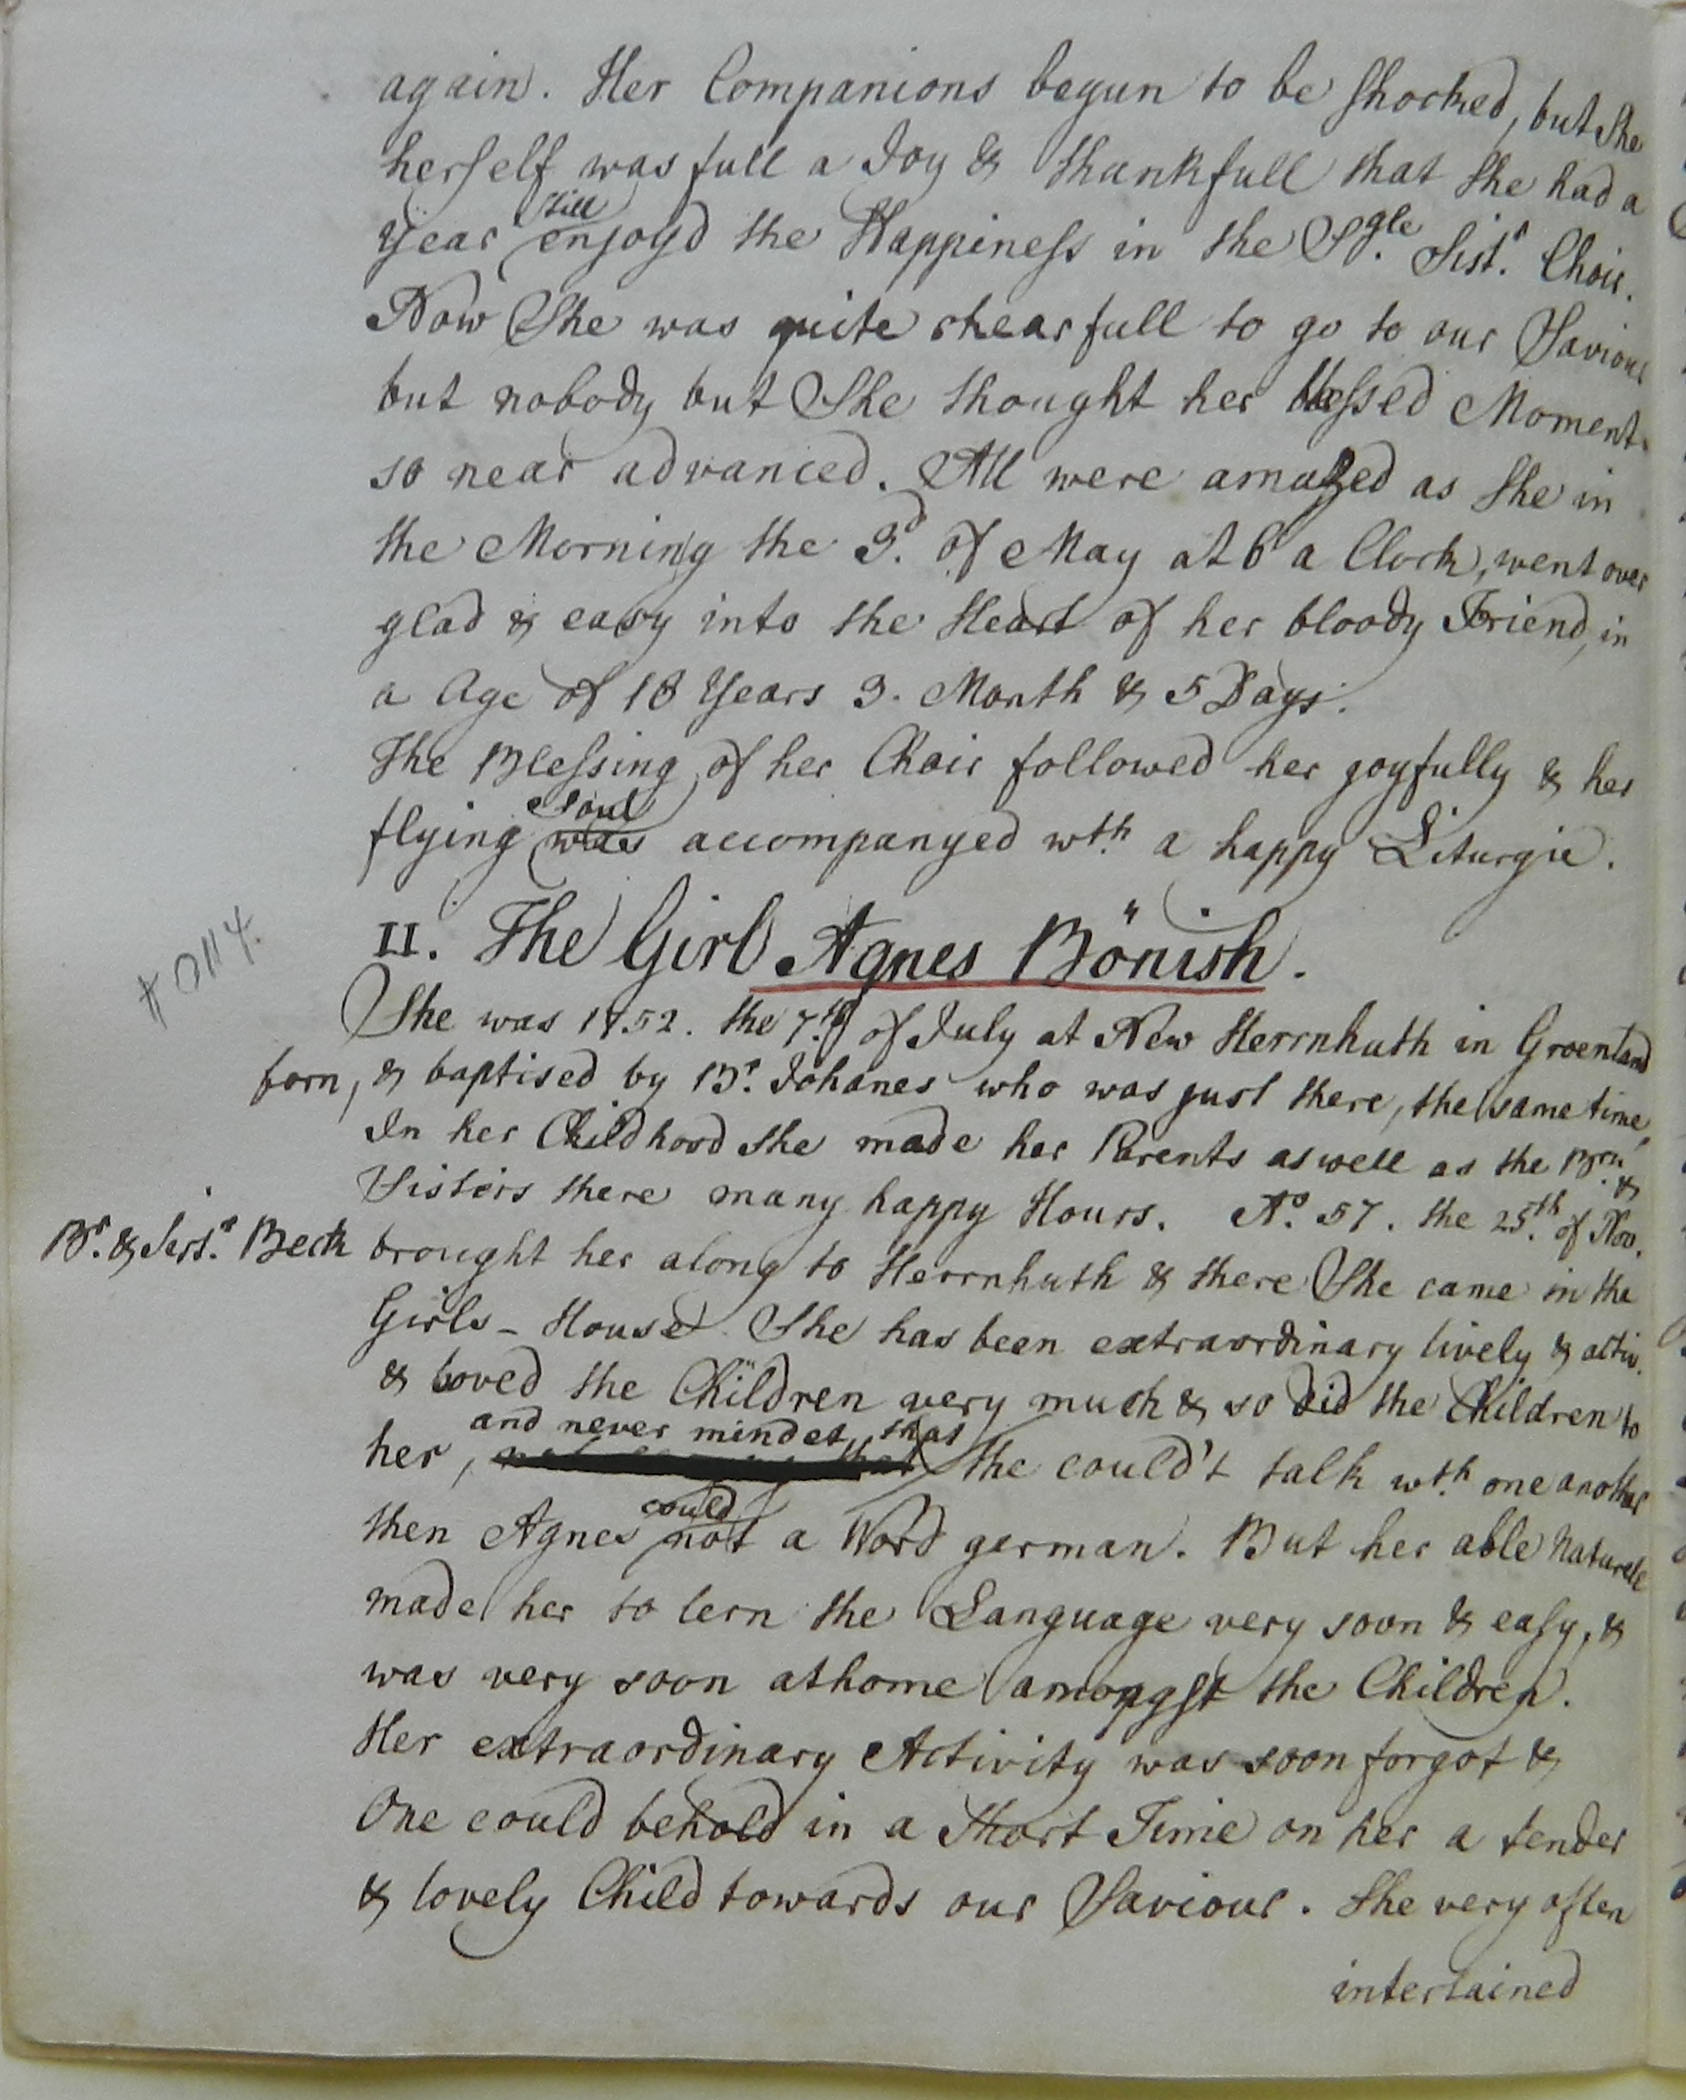 again. Her Companions begun to be shocked, but she
herself was full a Joy & thankfull that she had a
still
Year enjoyd the Happiness in the Sgle. Sistr. Choir.
Now She was quite chearfull to go to our Saviour
but nobody but She thought her blessed Moment
so near advanced. All were amazed as she in
the Morning the 3d. of May at 6 a Clock, went over
glad & easy into the Heart of her bloody Friend, in
a Age of 18 Years 3. Month & 5 Days.
The Blessing of her Choir followed her joyfully & her
Soul
flying was accompanyed wth. a happy Liturgie.
II. The Girl Agnes Bönish.
She was 1752. the 7th. of July at New Herrnhuth in Groenland
born, & baptised by Br. Johanes who was just there, the same time,
In her Childhood she made her Parents aswell as the Brn. &
Sisters there many happy Hours. Ao. 57. the 25th. of Nov.
Br. & Sistr. Beck brought her along to Herrnhuth & there She came in the
Girls-House. She has been extraordinary lively & activ.
& loved the Children very much & so did the Children to
and never mindet, that
her, the could't talk wth. one another
could
then Agnes not a Word german. But her able Naturele
made her to lern the Language very soon & easy, &
was very soon athome amongst the Children.
Her extraordinary Activity was soon forgot &
One could behold in a Short Time on her a tender
& lovely Child towards our Saviour. She very often
intertained